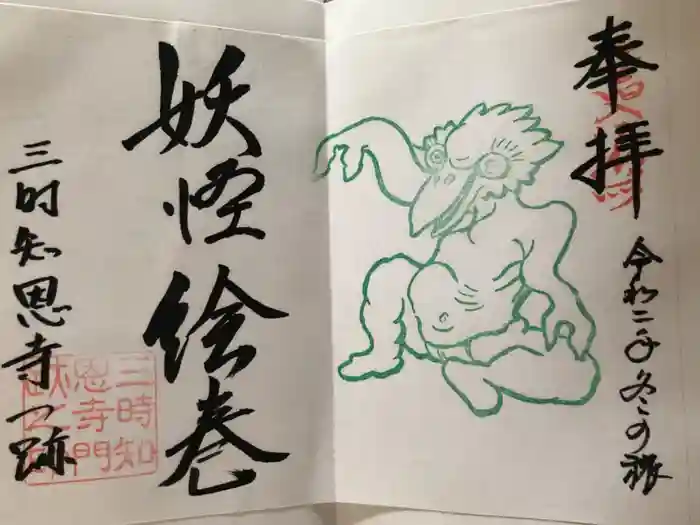 奉拝
令和二年冬の旅
妖怪絵巻
三时知恩寺门跡
三時知
恩寺門
跡之印